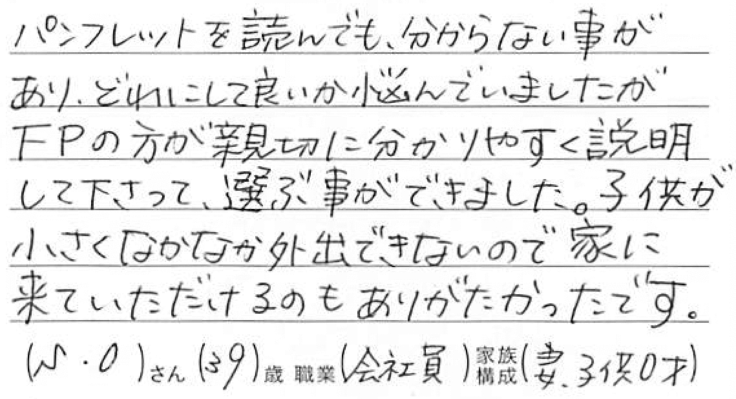 パンフレットを読んでも、分からない事が
あり、どれにして良いか悩んでいましたが
FPの方が親切に分かりやすく説明
して下さって、選ぶ事ができました。子供が
小さくなかなか外出できないので家に
来ていただけるのもありがたかったです。
(N.O)さん(39)歳 職業(会社員)家族構成(妻、子供0才)